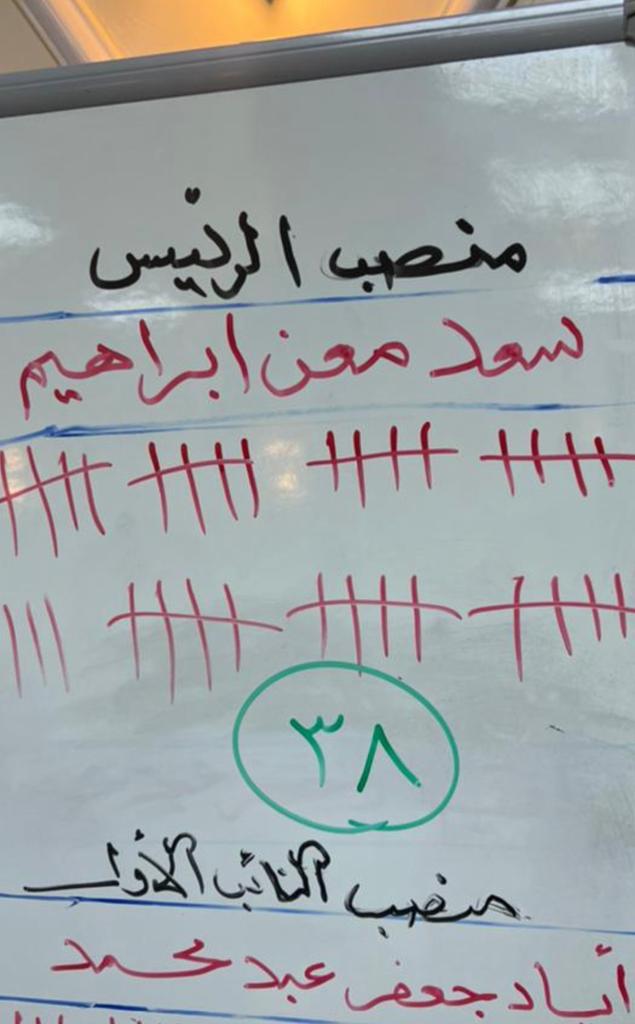 منصب الرئيس
سعد معن ابراهيم
٣٨
منصب النائب الأول
أساد جعفر عبد محمد